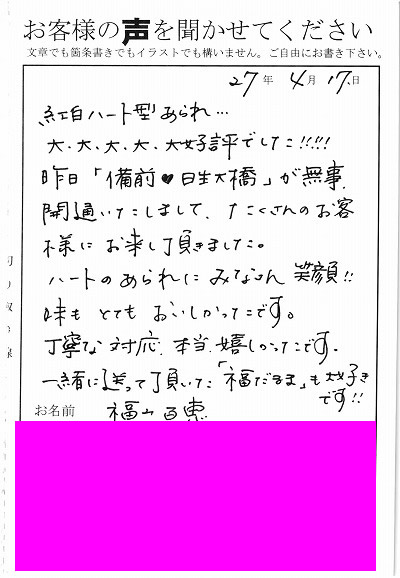 お客様の声を聞かせてください
文章でも箇条書きでもイラストでも構いません。ご自由にお書き下さい。
27年 4月 17日
紅白ハート型あられ…
大、大、大、大、大好評でした!!!!!
昨日「備前♥日生大橋」が無事、
開通いたしまして、たくさんのお客
様にお来し頂きました。
ハートのあられにみなさん 笑顔!!
味も とても おいしかったです。
丁寧な対応、本当、嬉しかったです。
一緒に送って頂いた「福だるま」も大好き
です!!
お名前 福山 百恵